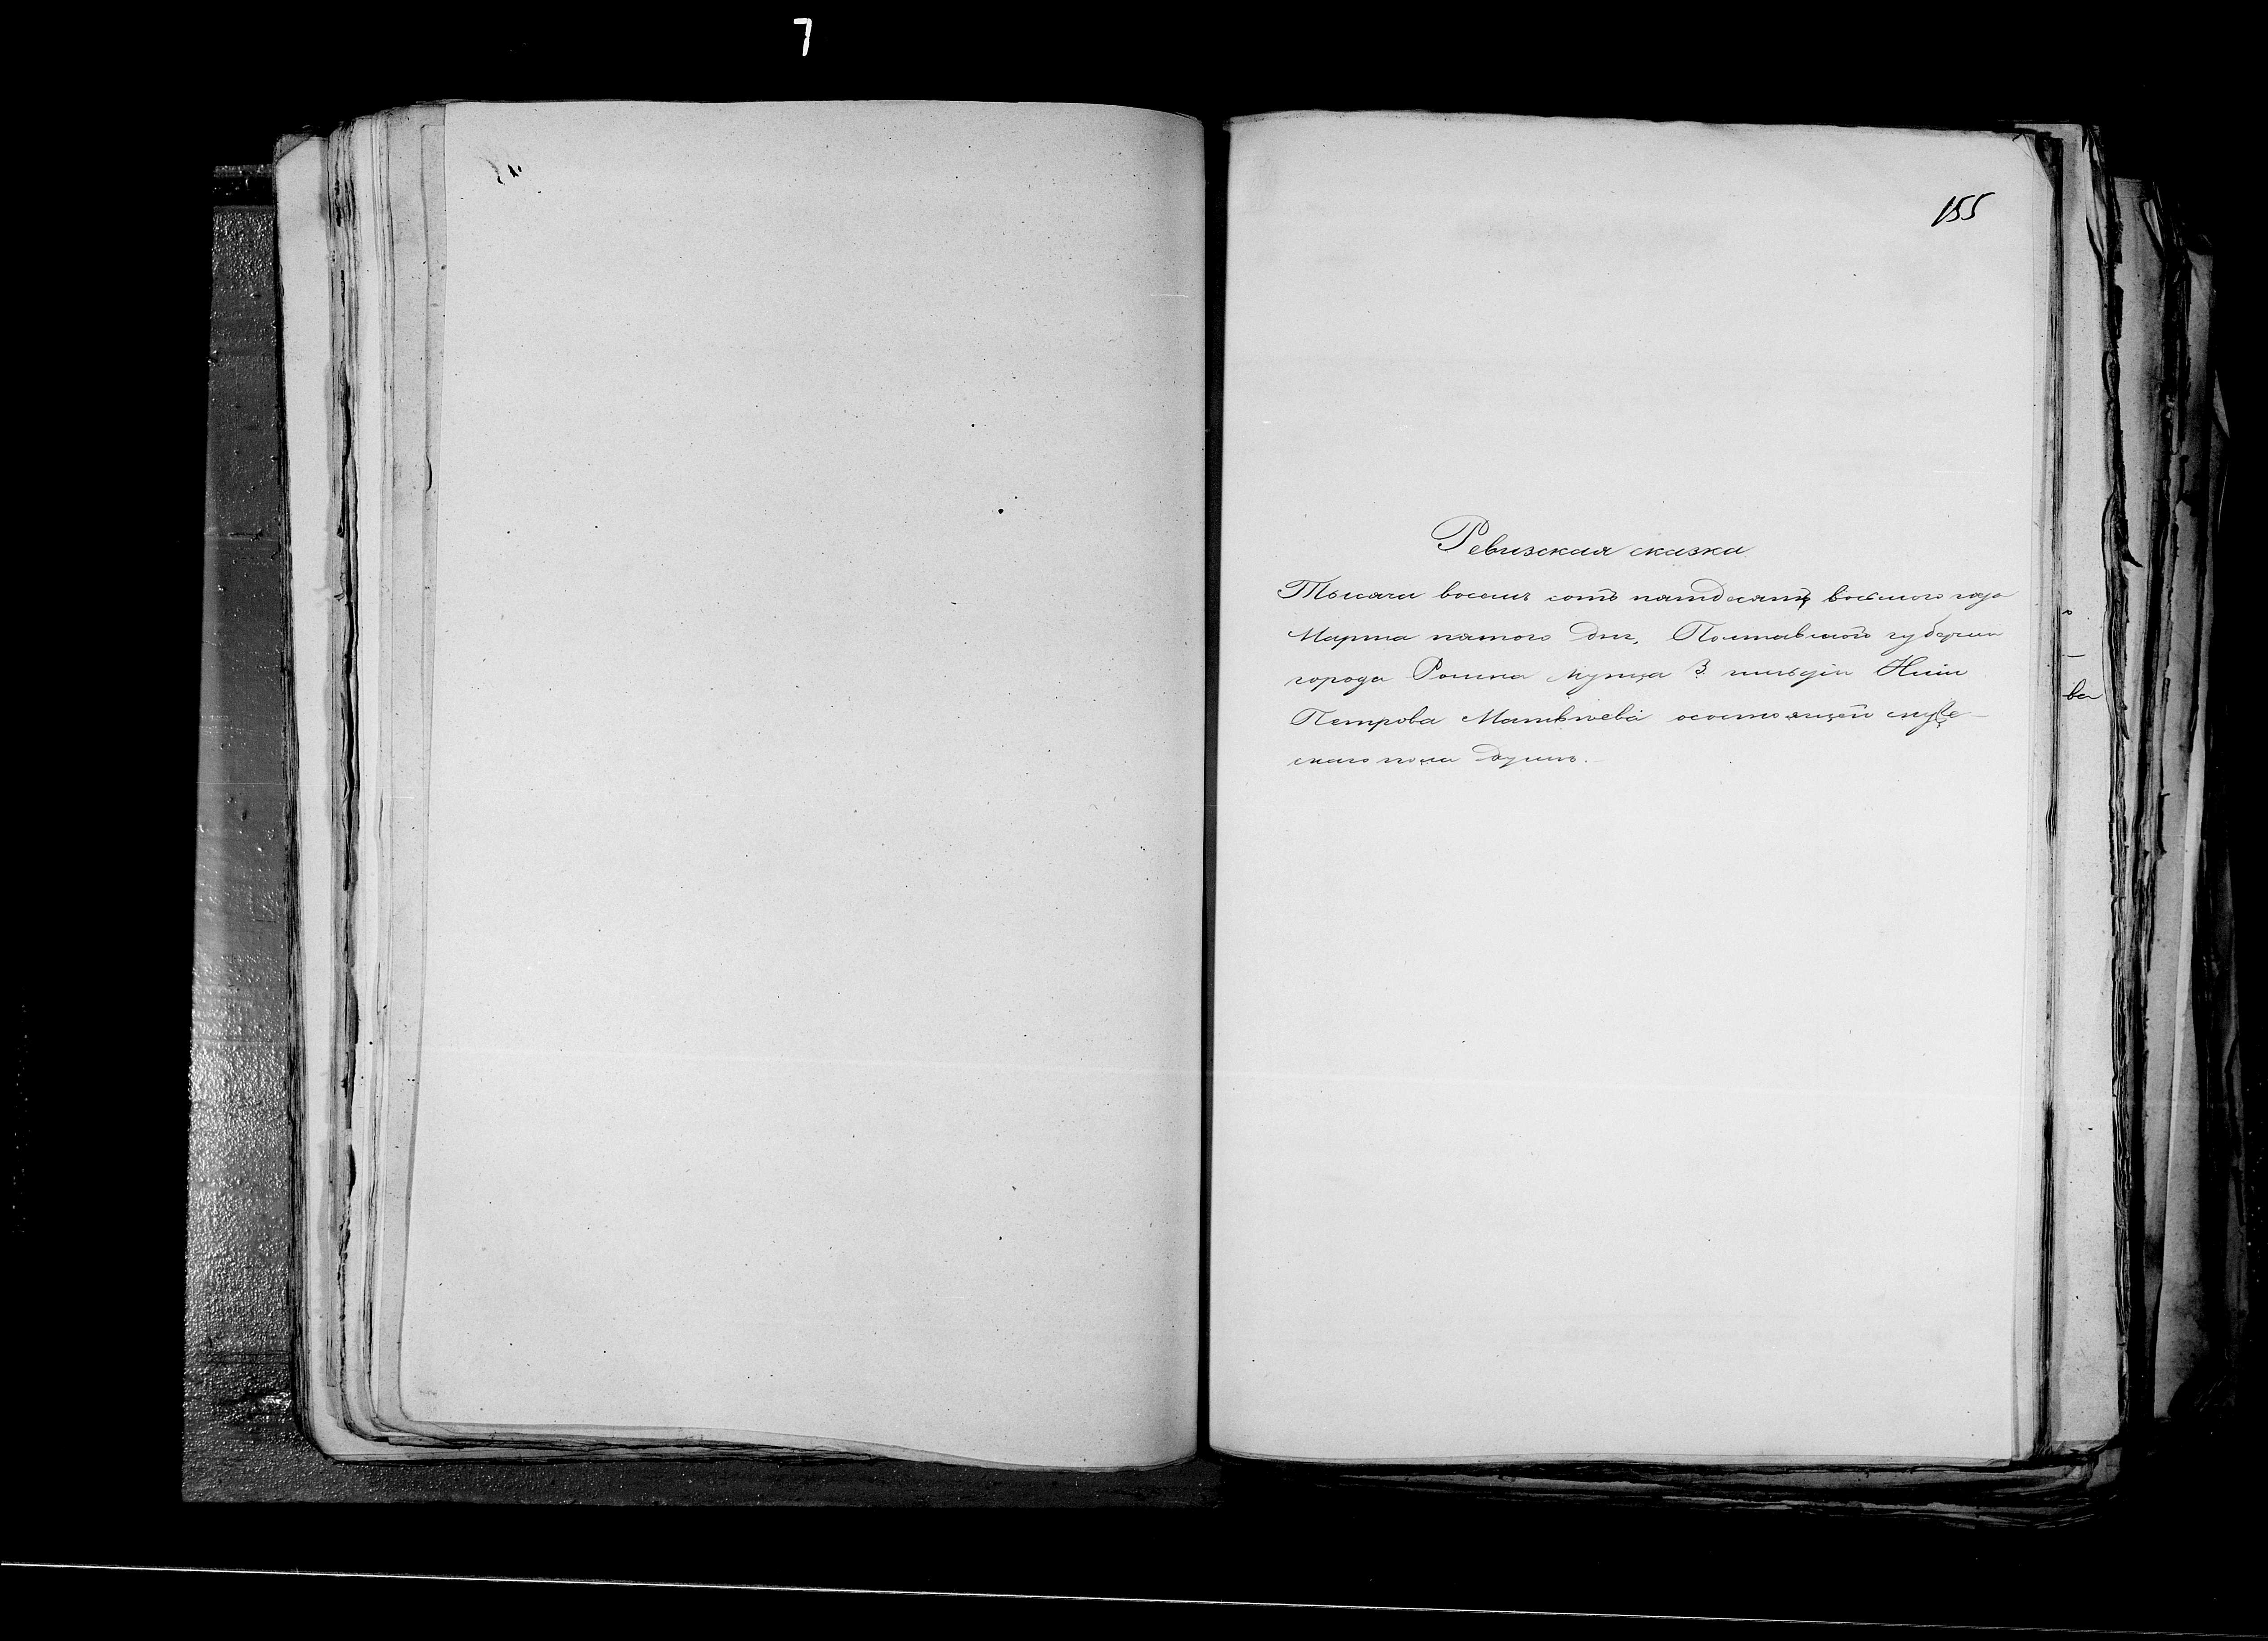 7
155
Ревизская сказка
Тысяча восемь сотъ пятдесятъ восьмого года
Марта пятого дня, Полтавской губернии
города Ромна купца 3 гильдіи
Петрова Матвѣева о состоящей муже-
скаго пола душъ.
ва